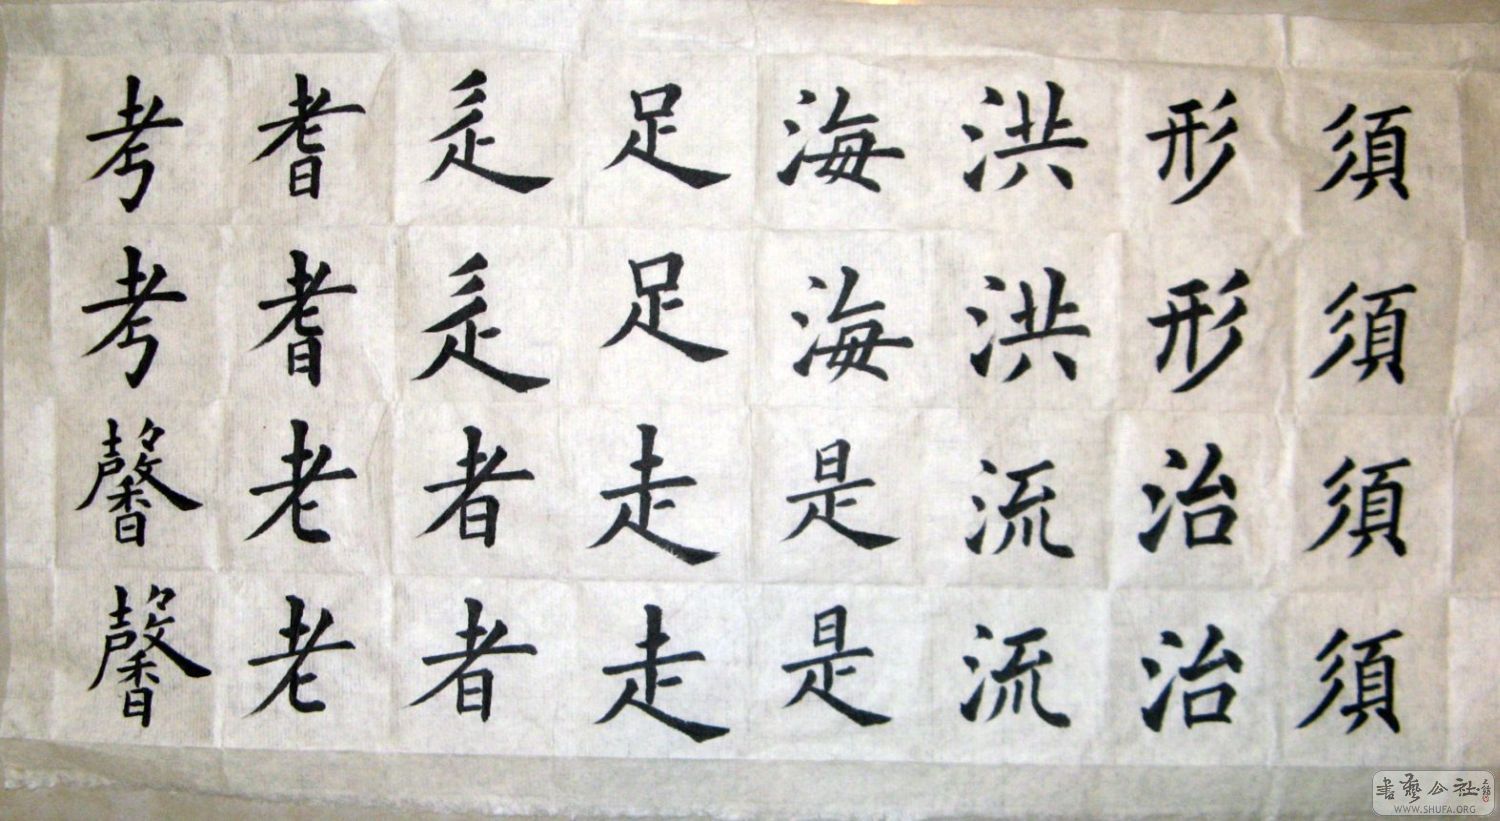 須須須須
形形治治
洪洪流流
海海是是
足足走走
辵辵者者
耆耆老老
考考馨馨
書藝公社
WWW.SHUFA.ORG